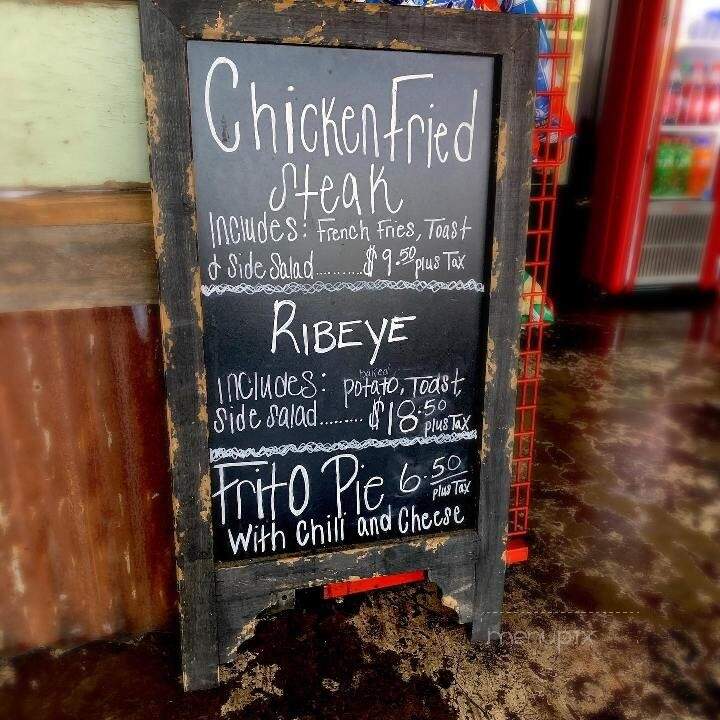 Chicken Fried
Steak
Includes: French Fries, Toast
& Side Salad.......... $9.50 plus Tax
RIBEYE
includes: baked potato, Toast,
side salad......... $18.50 plus Tax
Frito Pie 6.50 plus Tax
with chili and cheese
menupix